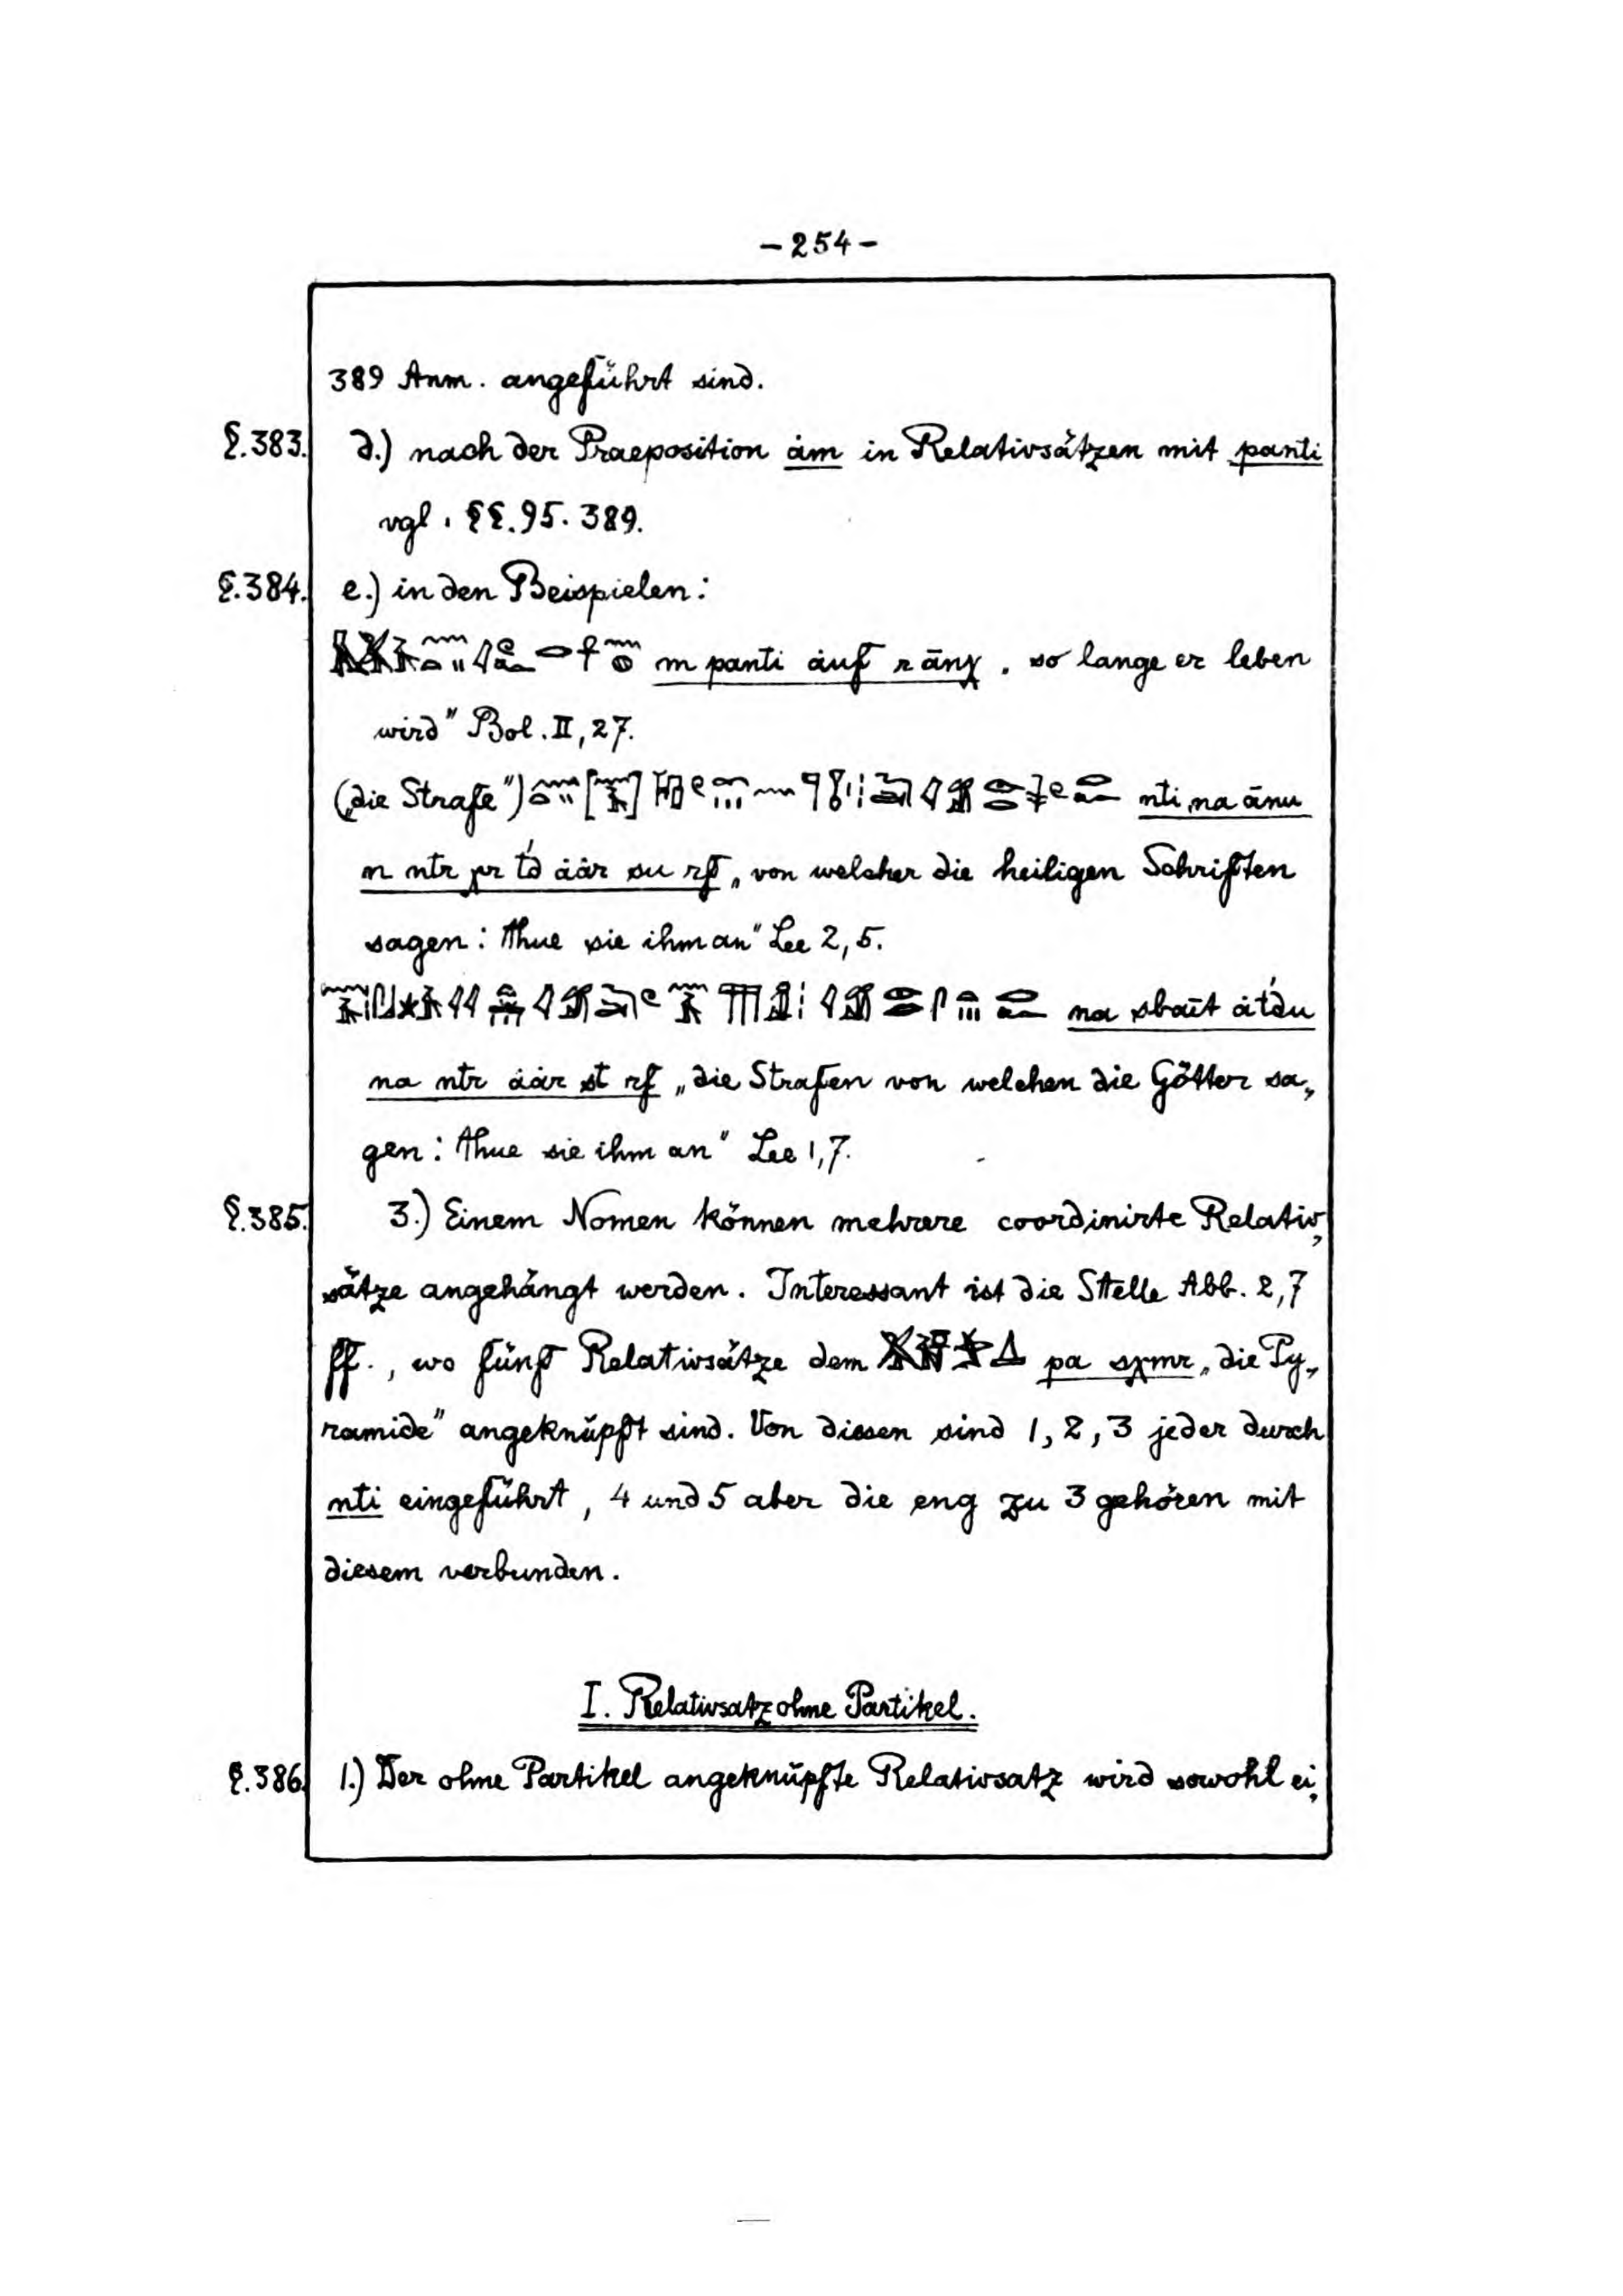 -254-
389 Anm. angeführt sind.
§.383. d.) nach der Praeposition ȧm in Relativsätzen mit panti
vgl. §§.95.389.
§.384. e.) in den Beispielen:
m panti ȧuf r ānχ „so lange er leben
wird" Bol. II, 27.
(„die Strafe") nti na ānu
n ntr ȧȧr su rf „von welcher die heiligen Schriften
sagen: thue sie ihm an" Lee 2,5.
na sbaīt
na ntr ȧȧr st rf „die Strafen von welchen die Götter sa„
gen: thue sie ihm an" Lee 1,7.
§.385. 3.) Einem Nomen können mehrere coordinirte Relativ„
sätze angehängt werden. Interessant ist die Stelle Abb. 2,7
ff., wo fünf Relativsätze dem pa sχmr „die Py„
ramide" angeknüpft sind. Von diesen sind 1, 2, 3 jeder durch
nti eingeführt, 4 und 5 aber die eng zu 3 gehören mit
diesem verbunden.
I. Relativsatz ohne Partikel.
§.386. 1.) Der ohne Partikel angeknüpfte Relativsatz wird sowohl ei„